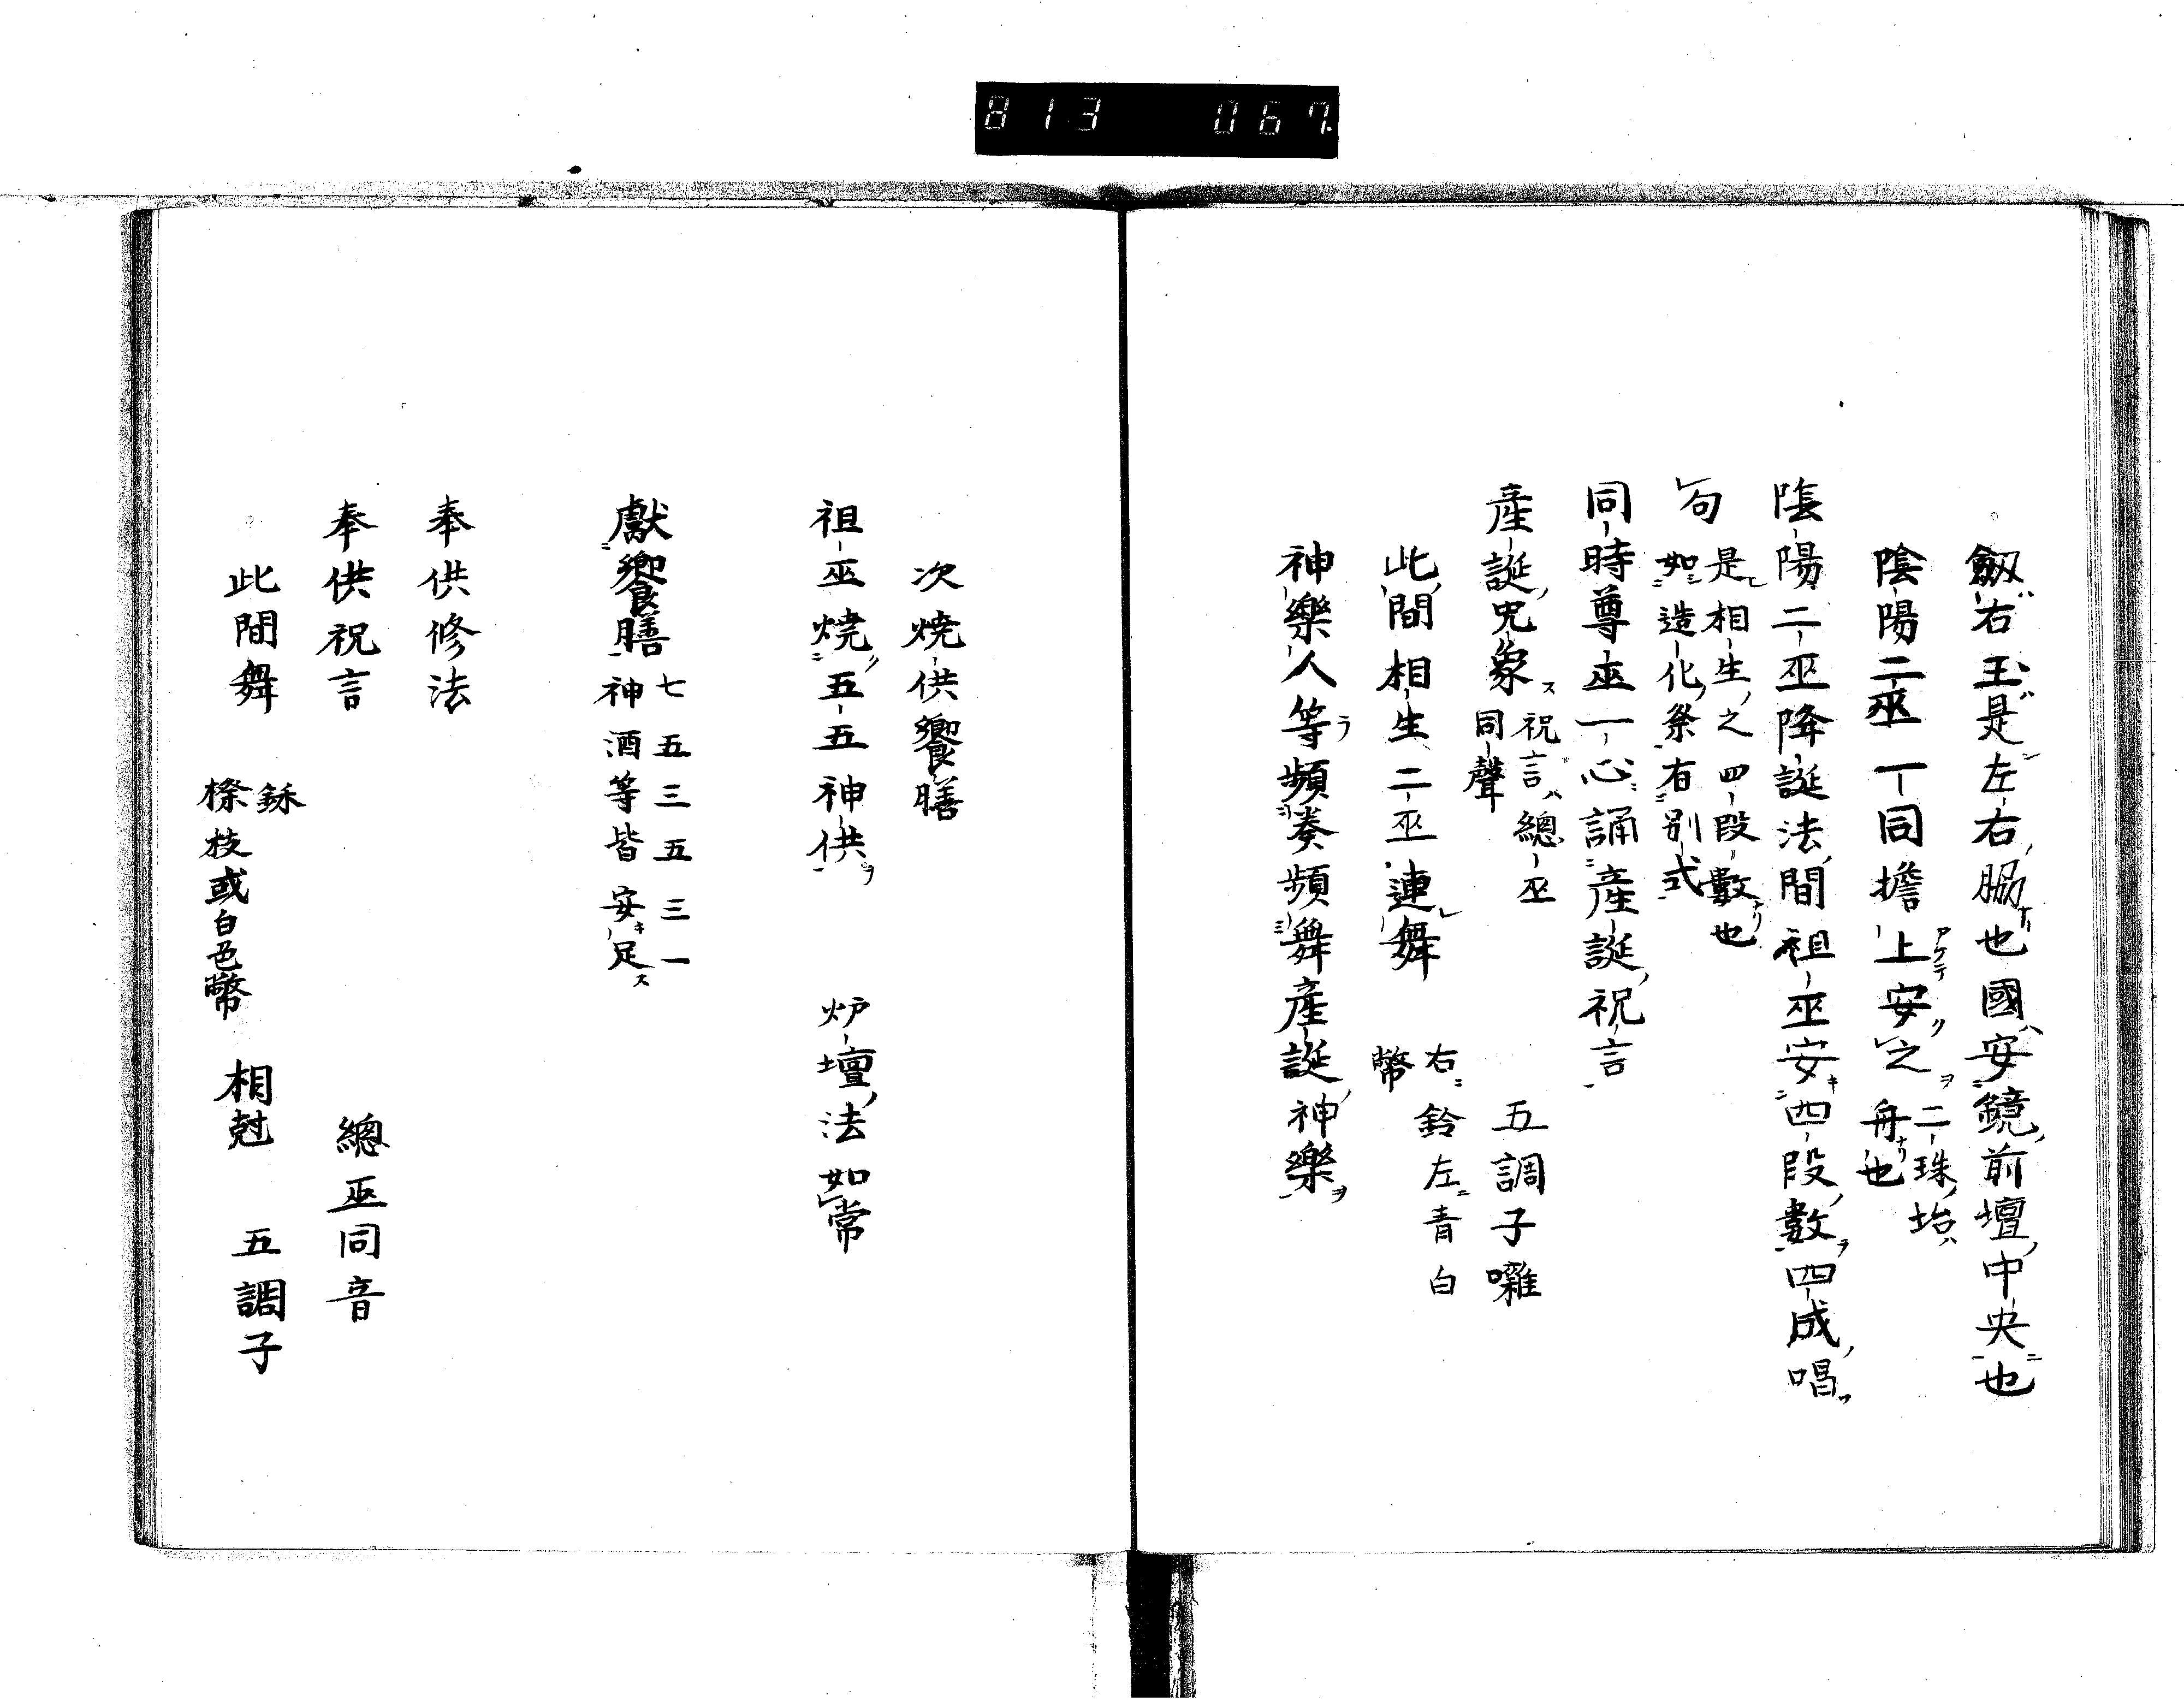 813 067
劔右玉是左右脇也國安鏡前壇中央也
陰陽二巫一同擔上安之 二珠坮舟也
陰陽二巫降誕法間祖巫安四段數四成唱
句 是相生之四段數也
如造化祭有別式
同時尊巫一心誦產誕祝言
產誕咒象 祝言總巫
同聲 五調子囃
此間相生二巫連舞 右鈴左青白
幣
神樂人等頻奏頻舞產誕神樂
次燒供饗膳
祖巫燒五五神供 炉壇法如常
獻饗膳 七五三五三一
神酒等皆安足
奉供修法
奉供祝言 總巫同音
此間舞 鉌
榇枝或白色幣 相尅 五調子